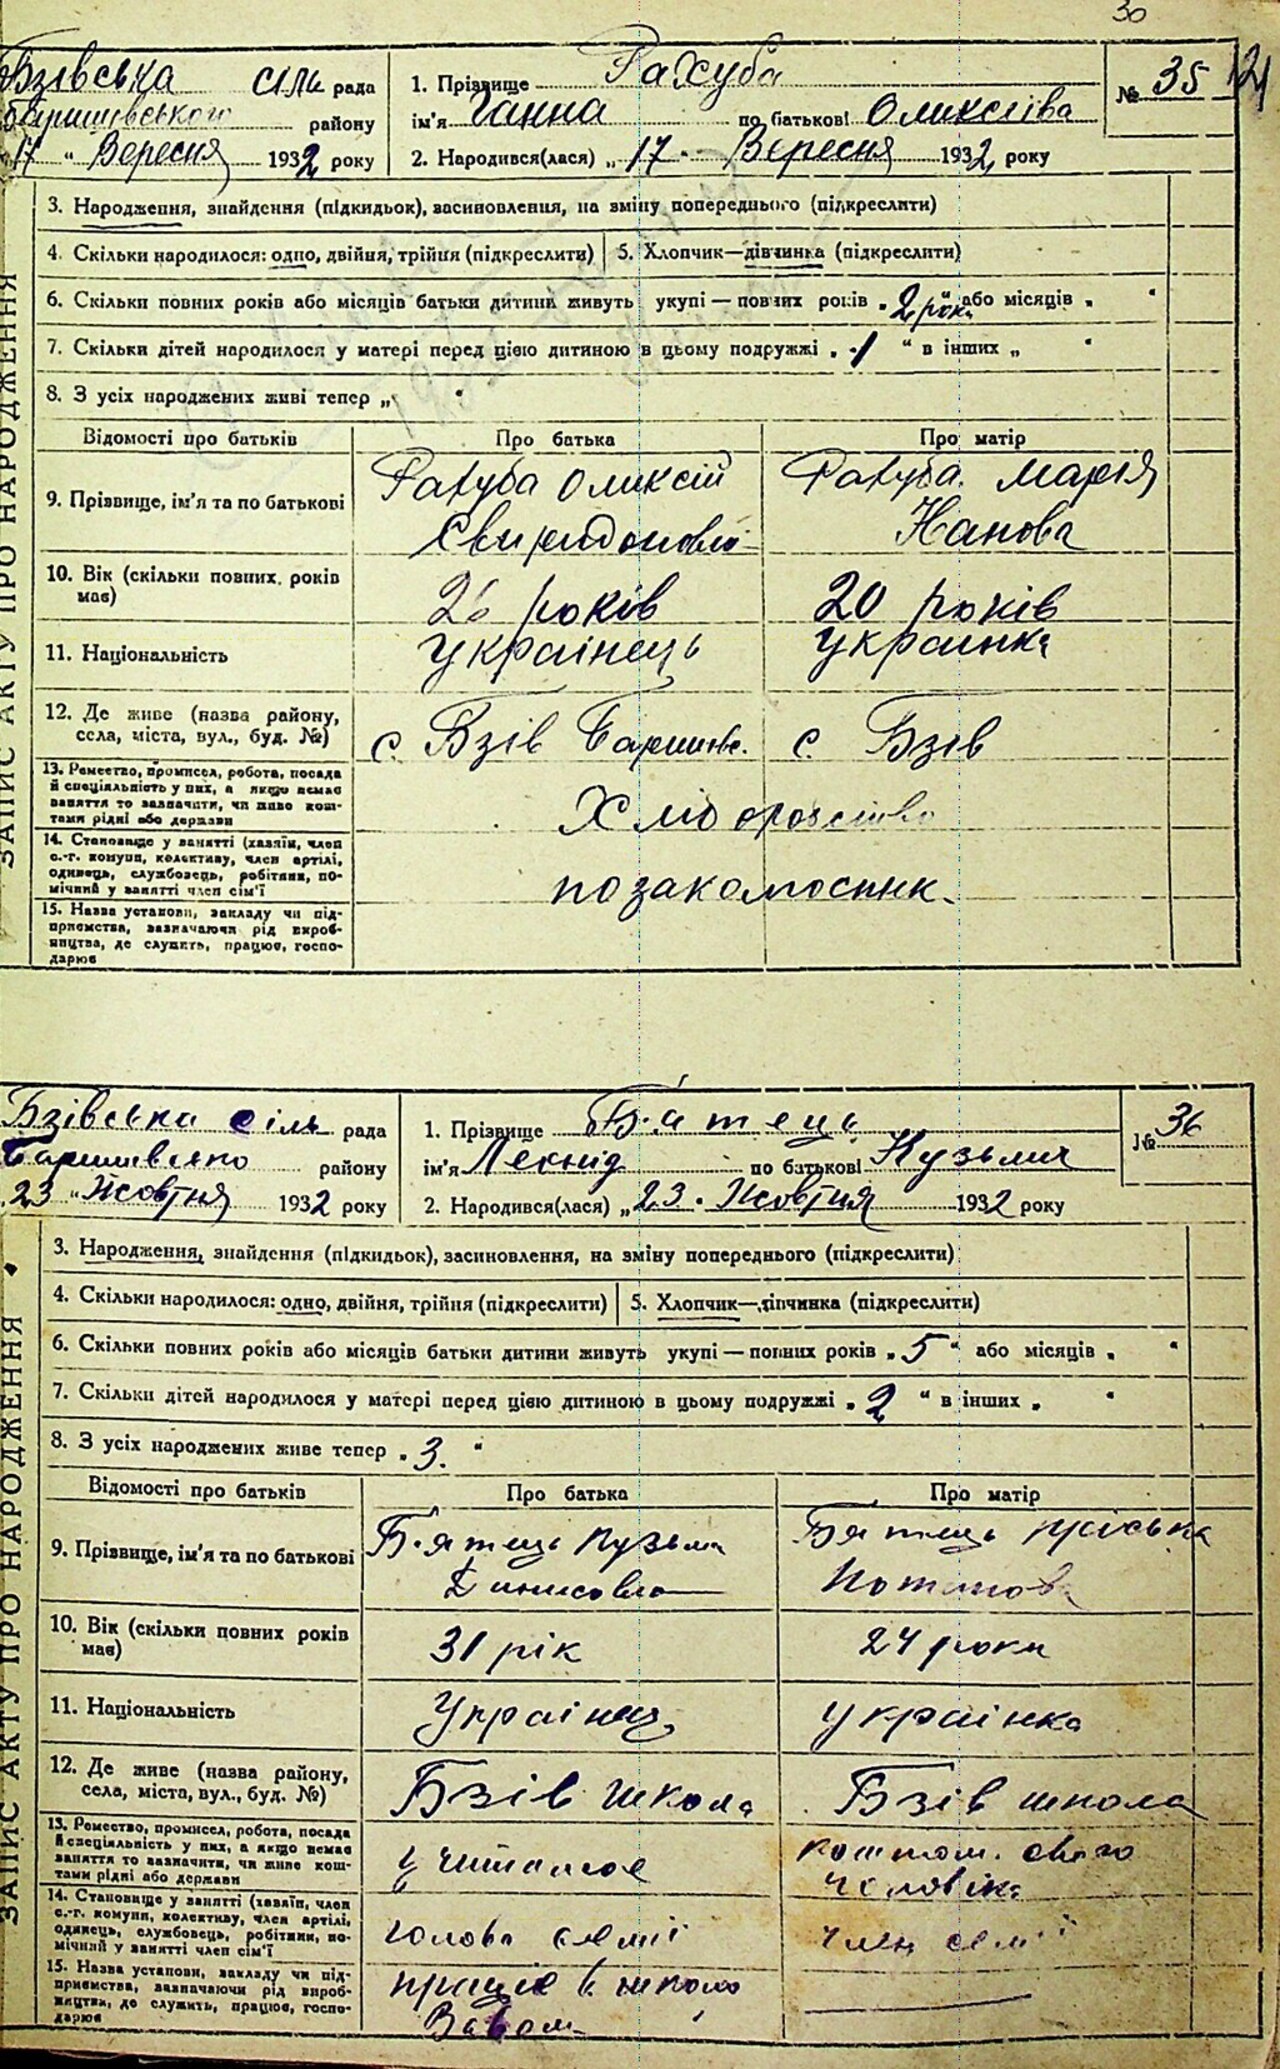 30
Бзівська сіль рада
Баришівського району
17 " Вересня 1932 року
1. Прізвище Рахуба
ім'я Ганна по батькові Оликсіїва
2. Народився(лася) „ 17 " Вересня 1932 року
№ 35
ЗАПИС АКТУ ПРО НАРОДЖЕННЯ
3. Народження, знайдення (підкидьок), засиновлення, на зміну попереднього (підкреслити)
4. Скільки народилося: одно, двійня, трійня (підкреслити) 5. Хлопчик—дівчинка (підкреслити)
6. Скільки повних років або місяців батьки дитини живуть укупі — повних років „ 2 роки " або місяців „ "
7. Скільки дітей народилося у матері перед цією дитиною в цьому подружжі „ 1 " в інших „ "
8. З усіх народжених живі тепер „ "
Відомості про батьків Про батька Про матір
9. Прізвище, ім'я та по батькові Рахуба Оликсій Рахуба Марія
Свиридонова Нанова
10. Вік (скільки повних років має) 26 років 20 років
11. Національність українець украинка
12. Де живе (назва району, села, міста, вул., буд. №) с. Бзів Баришівс. с. Бзів
13. Ремество, промисел, робота, посада
й спеціяльність у них, а якщо немає
заняття то зазначити, чи живе кош-
тами рідні або держави
Хліборобство
14. Становище у занятті (хазяїн, член
с.-г. комуни, колективу, член артілі,
одинець, службовець, робітник, по-
мічний у занятті член сім'ї
15. Назва установи, закладу чи під-
приємства, зазначаючи рід вироб-
ництва, де служить, працює, госпо-
дарює
Бзівська сіль рада
району
23 " Жовтня 1932 року
1. Прізвище Б'ятець
ім'я Леонід по батькові Кузьмич
2. Народився(лася) „ 23 " Жовтня 1932 року
№ 36
ЗАПИС АКТУ ПРО НАРОДЖЕННЯ
3. Народження, знайдення (підкидьок), засиновлення, на зміну попереднього (підкреслити)
4. Скільки народилося: одно, двійня, трійня (підкреслити) 5. Хлопчик—дівчинка (підкреслити)
6. Скільки повних років або місяців батьки дитини живуть укупі — повних років „ 5 " або місяців „ "
7. Скільки дітей народилося у матері перед цією дитиною в цьому подружжі „ 2 " в інших „ "
8. З усіх народжених живе тепер „ 3. "
Відомості про батьків Про батька Про матір
9. Прізвище, ім'я та по батькові Б'ятець Кузьма Бятець Пріська
Потапова
10. Вік (скільки повних років має) 31 рік 24 роки
11. Національність Українец українка
12. Де живе (назва району, села, міста, вул., буд. №) Бзів школа Бзів школа
13. Ремество, промисел, робота, посада
й спеціяльність у них, а якщо немає
заняття то зазначити, чи живе кош-
тами рідні або держави
коштом свого
человіка
14. Становище у занятті (хазяїн, член
с.-г. комуни, колективу, член артілі,
одинець, службовець, робітник, по-
мічний у занятті член сім'ї
голова семії член семії
15. Назва установи, закладу чи під-
приємства, зазначаючи рід вироб-
ництва, де служить, працює, госпо-
дарює
працює в школі
Завом